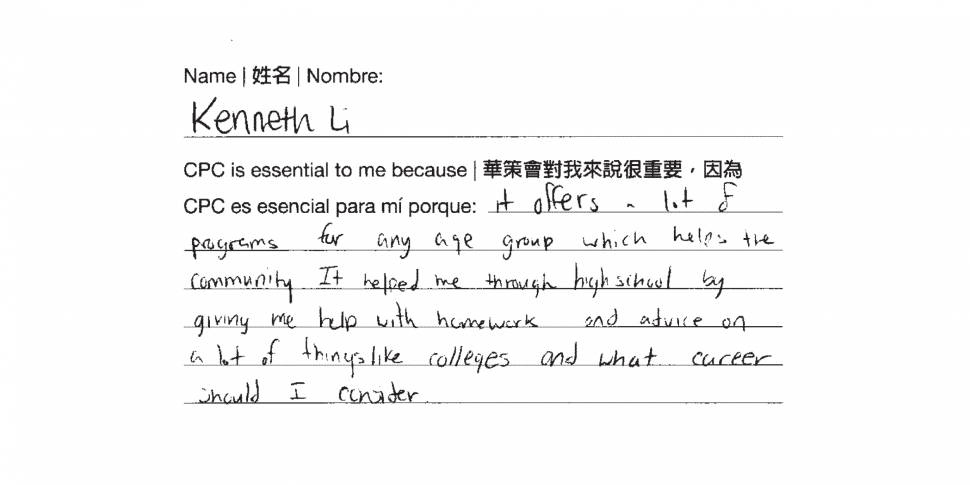 Name | 姓名 | Nombre:
Kenneth Li
CPC is essential to me because | 華策會對我來說很重要，因為
CPC es esencial para mí porque: it offers a lot of
programs for any age group which helps the
community It helped me through high school by
giving me help with homework and advice on
a lot of things like colleges and what career
should I consider